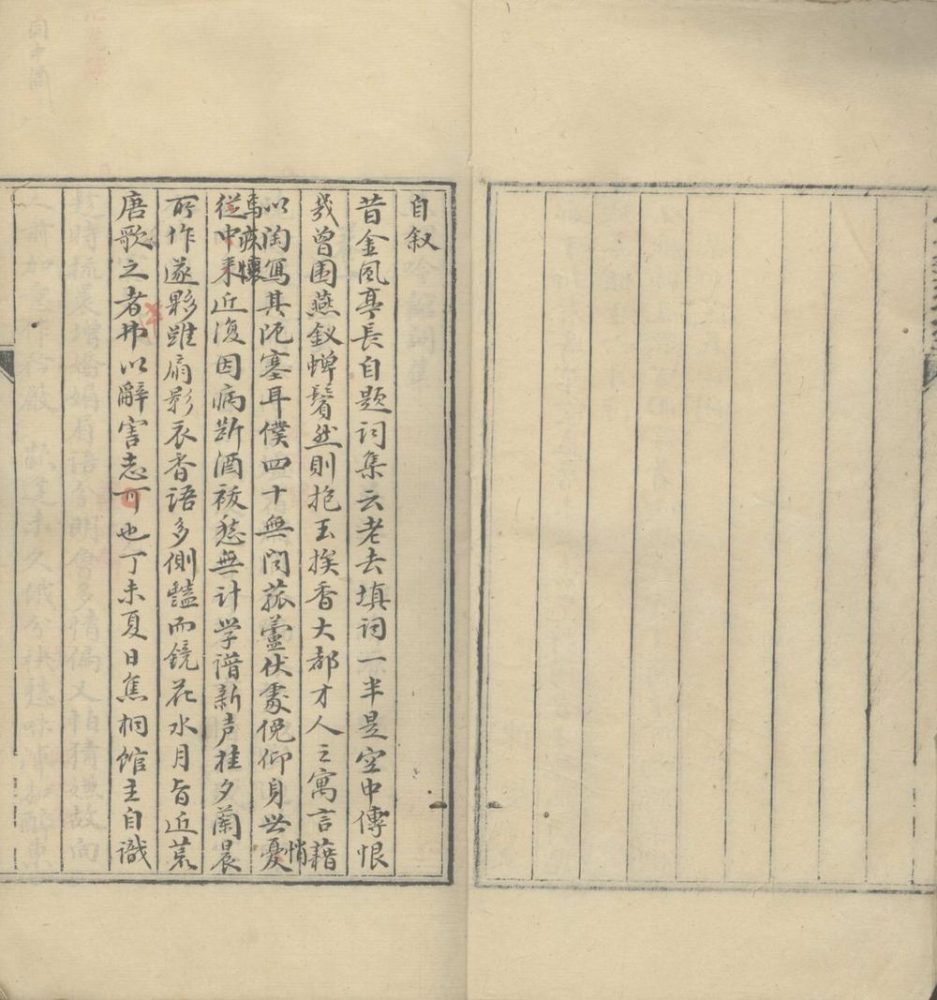 自叙
昔金風亭長自題词集云老去填词一半是空中傳恨
幾曾围燕釵蝉鬓然則抱玉挨香大都才人之寓言藉
以陶寫其阨塞耳僕四十無闻菰蘆伏處俛仰身世憂
悄
焉疚懷
從中来近復因病断酒祓愁無计学谱新声桂夕蘭晨
所作遂夥雖扇影衣香語多側豔而鏡花水月旨近荒
唐歌之者毋以辭害志可也丁未夏日焦桐馆主自識